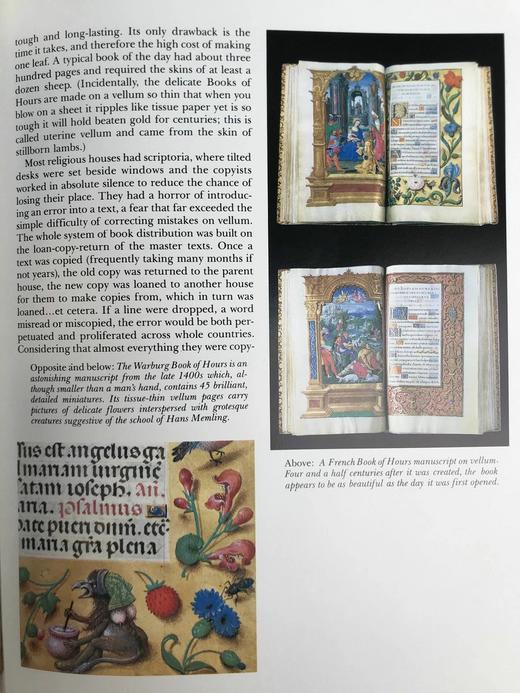 tough and long-lasting. Its only drawback is the
time it takes, and therefore the high cost of making
one leaf. A typical book of the day had about three
hundred pages and required the skins of at least a
dozen sheep. (Incidentally, the delicate Books of
Hours are made on a vellum so thin that when you
blow on a sheet it ripples like tissue paper yet is so
tough it will hold beaten gold for centuries; this is
called uterine vellum and came from the skin of
stillborn lambs.)
Most religious houses had scriptoria, where tilted
desks were set beside windows and the copyists
worked in absolute silence to reduce the chance of
losing their place. They had a horror of introduc-
ing an error into a text, a fear that far exceeded the
simple difficulty of correcting mistakes on vellum.
The whole system of book distribution was built on
the loan-copy-return of the master texts. Once a
text was copied (frequently taking many months if
not years), the old copy was returned to the parent
house, the new copy was loaned to another house
for them to make copies from, which in turn was
loaned...et cetera. If a line were dropped, a word
misread or miscopied, the error would be both per-
petuated and proliferated across whole countries.
Considering that almost everything they were copy-
Opposite and below: The Warburg Book of Hours is an
astonishing manuscript from the late 1400s which, al-
though smaller than a man's hand, contains 45 brilliant,
detailed miniatures. Its tissue-thin vellum pages carry
pictures of delicate flowers interspersed with grotesque
creatures suggestive of the school of Hans Memling.
est angelus ga
manam virgine
ioseph. An.
aria. psalmus
maria gra plena
Above: A French Book of Hours manuscript on vellum.
Four and a half centuries after it was created, the book
appears to be as beautiful as the day it was first opened.